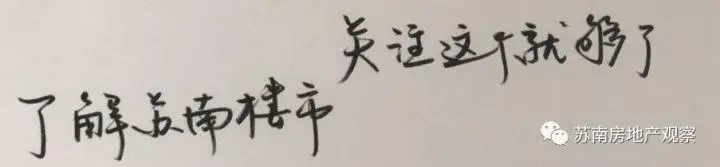 了解苏南楼市
关注这个就够了
苏南房地产观察